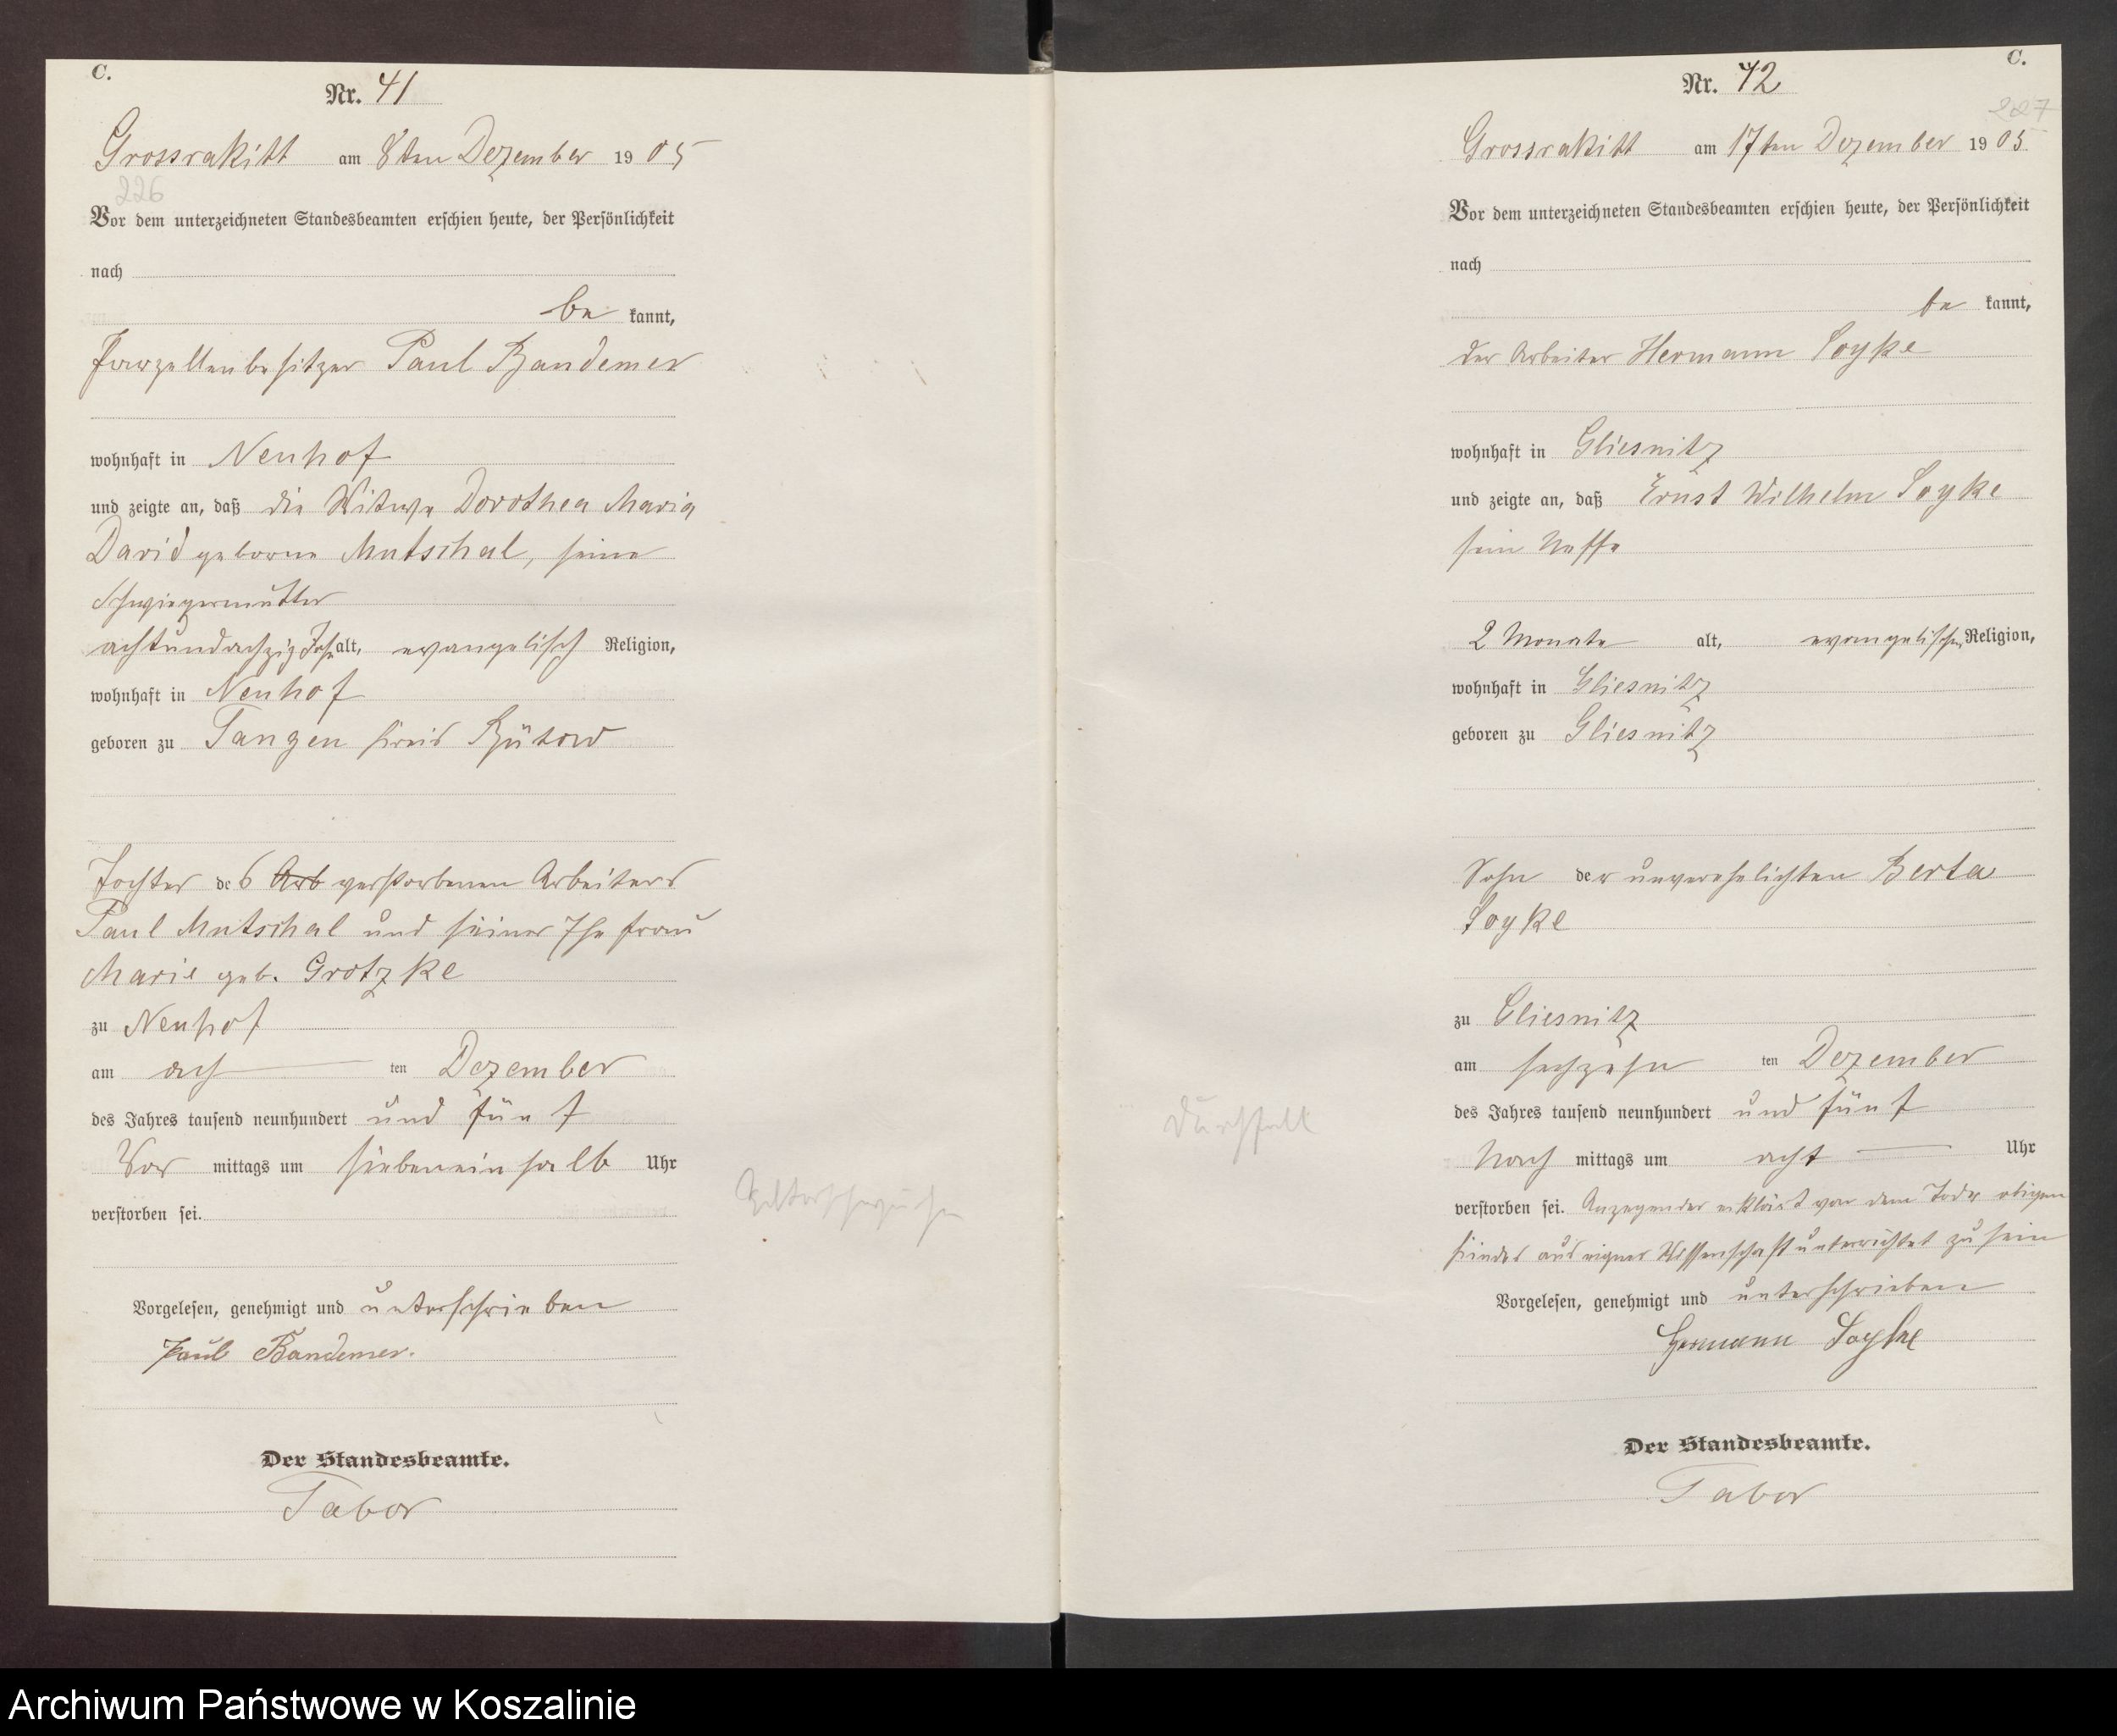 C.
Nr. 41
Grossrakitt am 8ten Dezember 1905
226
Vor dem unterzeichneten Standesbeamten erschien heute, der Persönlichkeit
nach
be kannt,
Parzellenbesitzer Paul Bandemer
wohnhaft in Neuhof
und zeigte an, daß die Witwe Dorothea Maria
David geborne Mutschal, seine
Schwiegermutter
achtundachzig Jahr alt, evangelisch Religion,
wohnhaft in Neuhof
geboren zu Tangen Kreis Bütow
Tochter des Arb verstorbenen Arbeiters
Paul Mutschal und seiner Ehefrau
Marie geb. Grotzke
zu Neuhof
am ach ten Dezember
des Jahres tausend neunhundert und fünf
Vor mittags um siebeneinhalb Uhr
verstorben sei.
Altersschwäche
Vorgelesen, genehmigt und unterschrieben
Paul Bandemer.
Der Standesbeamte.
Tabor
C.
Nr. 42
227
Grossrakitt am 17ten Dezember 1905
Vor dem unterzeichneten Standesbeamten erschien heute, der Persönlichkeit
nach
be kannt,
der Arbeiter Hermann Soyke
wohnhaft in Gliesnitz
und zeigte an, daß Ernst Wilhelm Soyke
sein Neffe
2 Monate alt, evangelischer Religion,
wohnhaft in Gliesnitz
geboren zu Gliesnitz
Sohn der unverehelichten Berta
Soyke
zu Gliesnitz
am sechzehn ten Dezember
des Jahres tausend neunhundert und fünf
Durchfall
Nach mittags um acht Uhr
verstorben sei. Anzegender erklärt von dem Tode obigen
Kindes aus eigner Wissenschaft unterrichtet zu sein
Vorgelesen, genehmigt und unterschrieben
Hermann Soyke
Der Standesbeamte.
Tabor
Archiwum Państwowe w Koszalinie